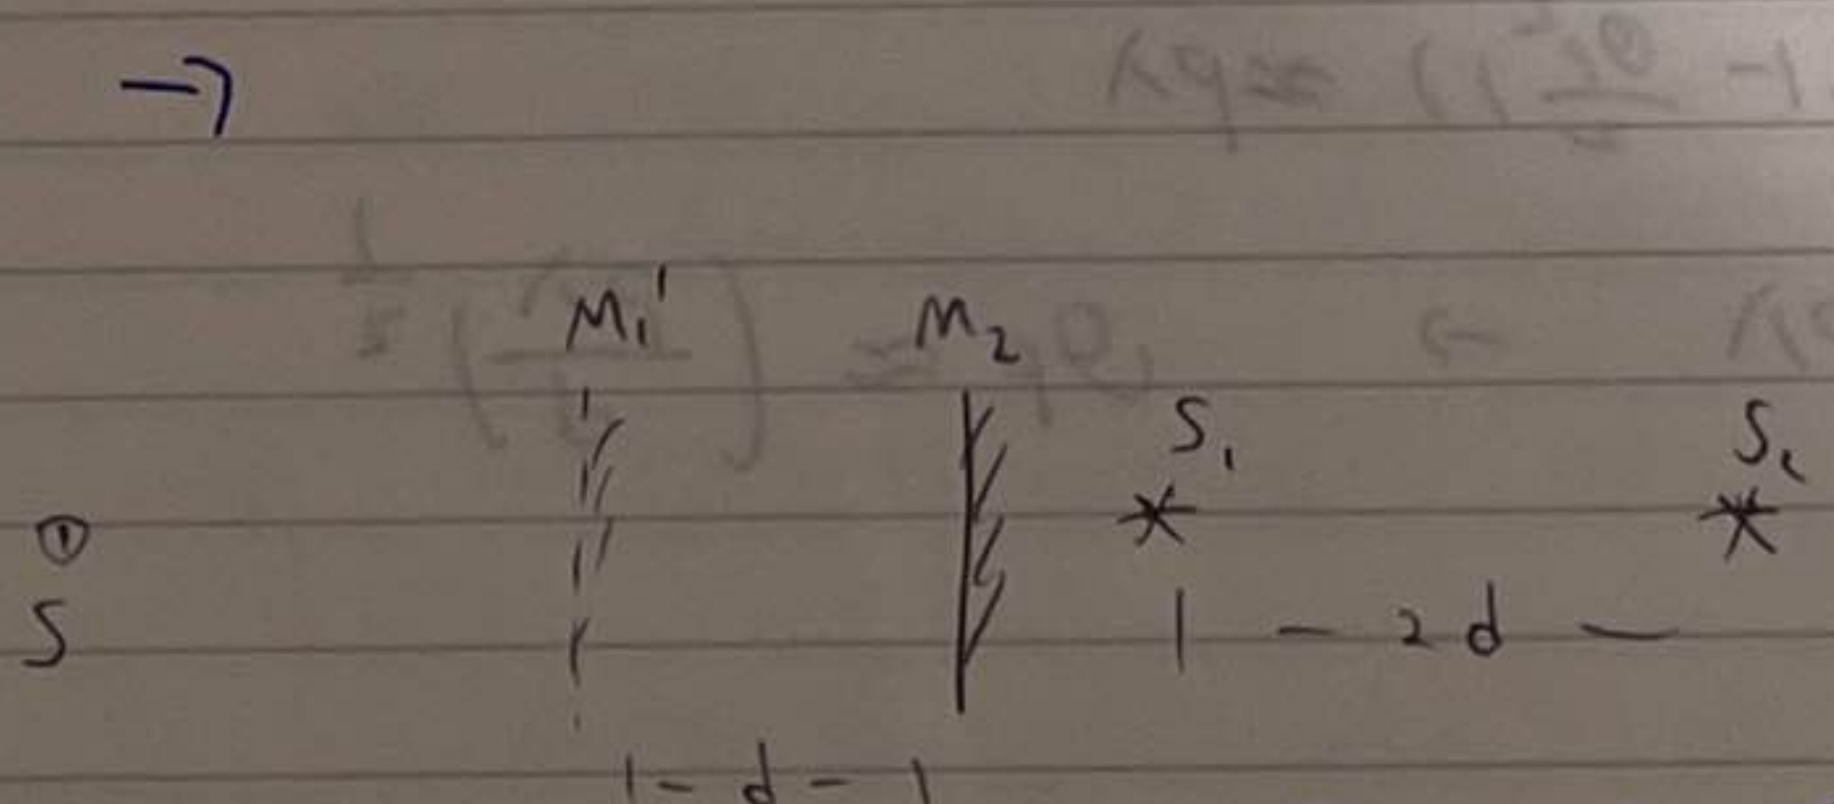 →
M₁' M₂
S₁ S₂
S
| - 2d -
|- d -|